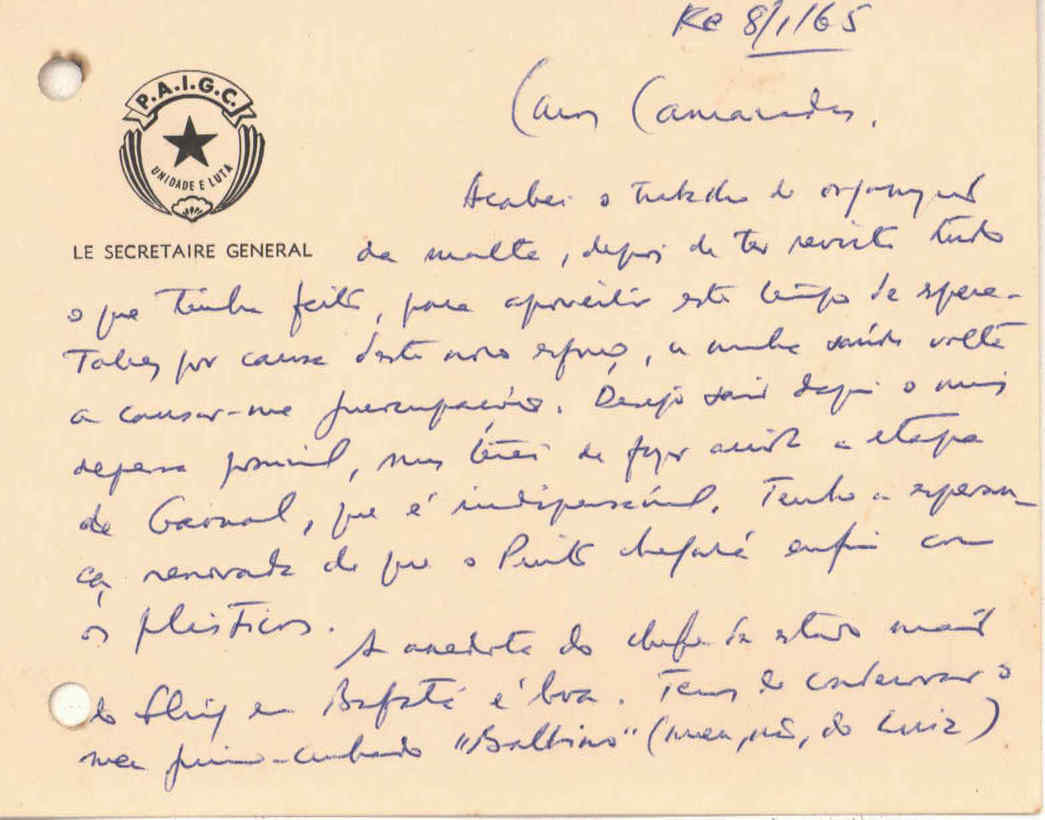 Ke 8/1/65
P.A.I.G.C.
UNIDADE E LUTA
LE SECRETAIRE GENERAL
Caros Camaradas,
Acabei o trabalho de
da malta, depois de ter revisto tudo
o que tinha feito, para aproveitar este tempo de espera.
Talvez por causa deste novo esforço, a minha saúde volta
a causar-me preocupações. Desejo sair daqui o mais
depressa possível, mas terei de fazer ainda a etapa
de Gaoual, que é indispensável. Tenho a esperan-
ça renovada de que o Pinto chegará enfim com
os plásticos.
A anedota do chefe de estado maior
do em Bafatá é boa. Temos de condecorar o
meu primo-cunhado "Balbino" (meu, não, do Luiz)